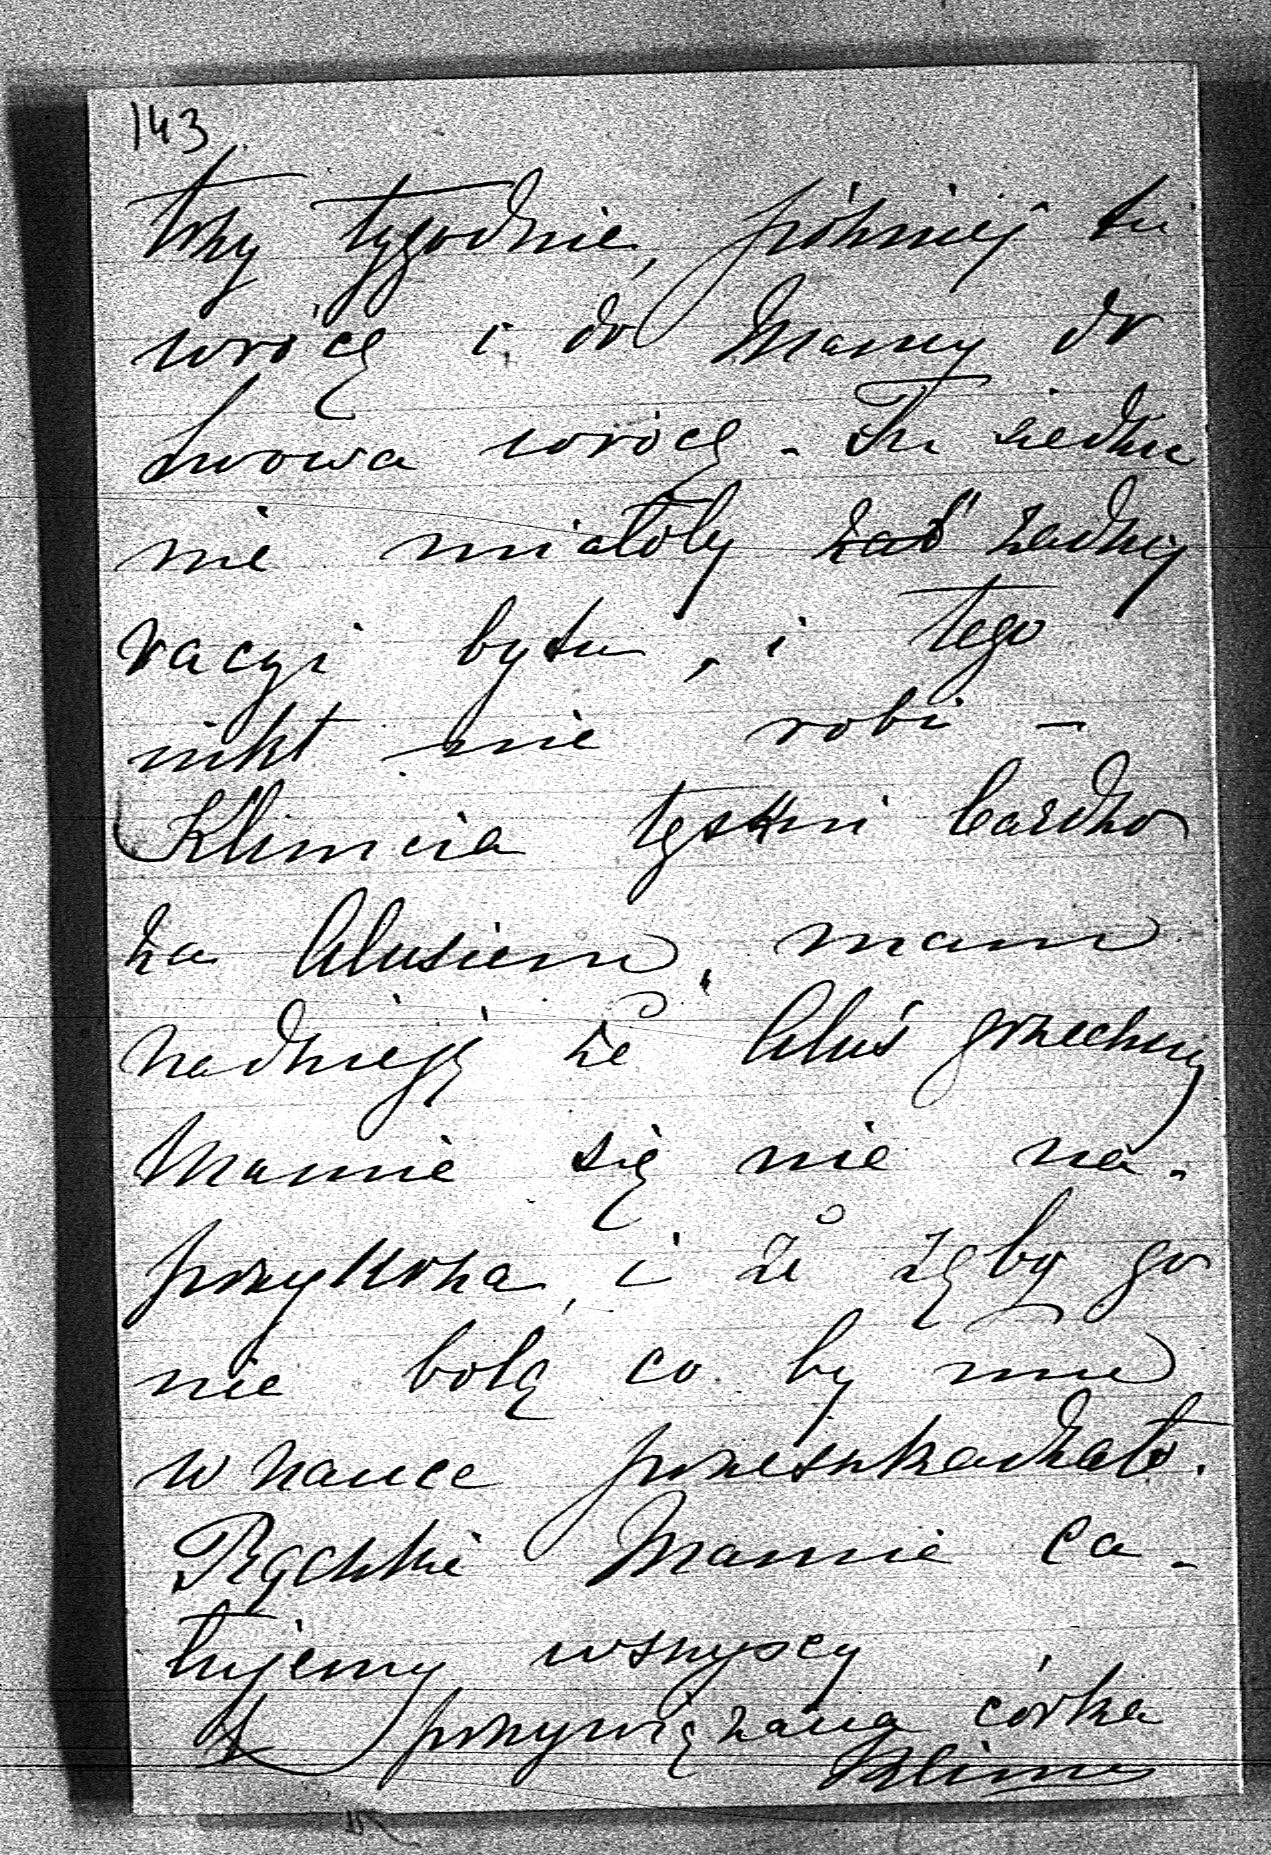 143
trzy tygodnie, później tu
wrócę i do Mamy do
Lwowa wrócę - Tu siedzieć
nie miałoby zaś żadnej
racyi bytu, i tego
nikt nie robi -
Klimcia tęskni bardzo
za Alusiem, mam
nadzieję że Aluś grzeczny
Mamie się nie na-
przykrza, i że zęby go
nie bolą co by mu
w nauce przeszkadzało.
Rączki Mamie ca-
łujemy wszyscy
przywiązana córka
Klima